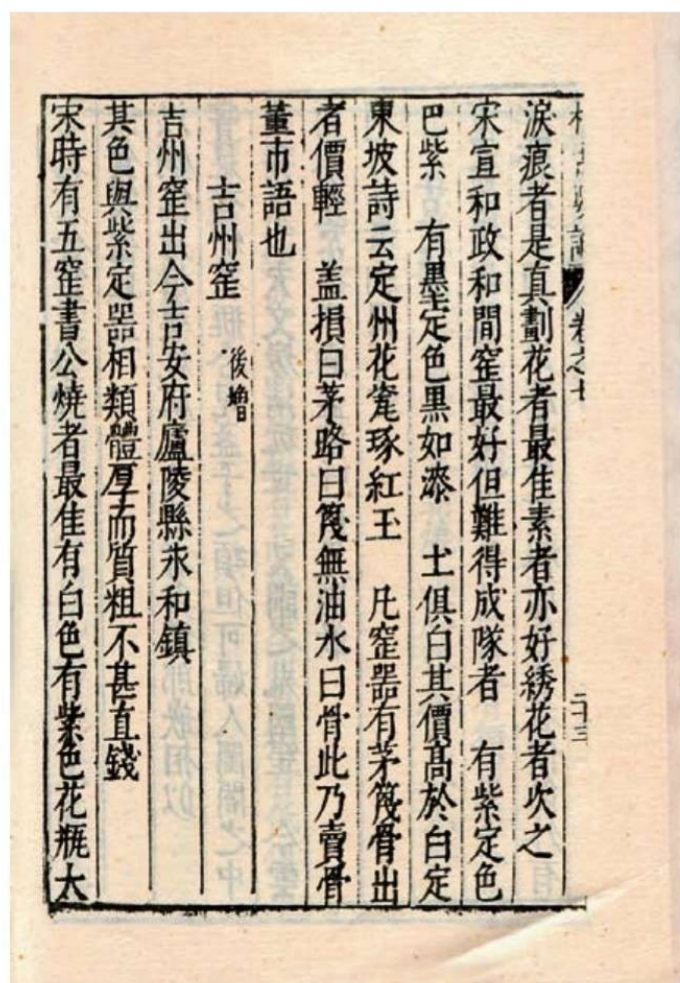 格古要論 卷之七 二十三
淚痕者是真劃花者最佳素者亦好綉花者次之
宋宣和政和間窑最好但難得成隊者 有紫定色
巴紫 有墨定色黑如漆 土俱白其價髙於白定
東坡詩云定州花甆琢紅玉 凡窑器有茅篾骨出
者價輕 盖損曰茅路曰篾無油水曰骨此乃賣骨
董市語也
吉州窑 後增
吉州窑出今吉安府廬陵縣永和鎮
其色與紫定器相類體厚而質粗不甚直錢
宋時有五窑書公燒者最佳有白色有紫色花瓶大